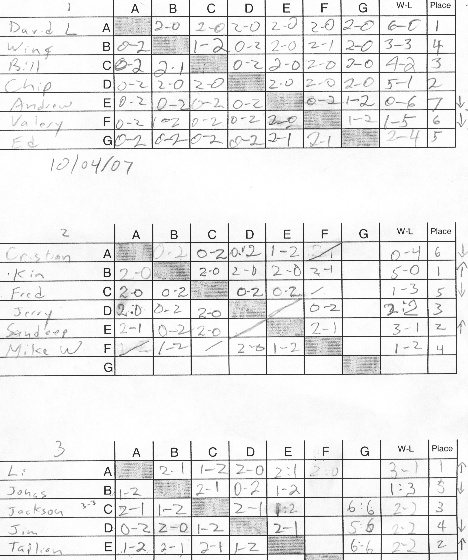 1 A B C D E F G W-L Place
David L A 2-0 2-0 2-0 2-0 2-0 2-0 6-0 1
Wing B 0-2 1-2 0-2 2-0 2-1 2-0 3-3 4
Bill C 0-2 2-1 0-2 2-0 2-0 2-0 4-2 3
Chip D 0-2 2-0 2-0 2-0 2-0 2-0 5-1 2
Andrew E 0-2 0-2 0-2 0-2 0-2 1-2 0-6 7 ↓
Valery F 0-2 1-2 0-2 0-2 2-0 1-2 1-5 6 ↓
Ed G 0-2 0-2 0-2 0-2 2-1 2-1 2-4 5
10/04/07
2 A B C D E F G W-L Place
Cristian A 0-2 0-2 0-2 1-2 0-4 6 ↓
Kin B 2-0 2-0 2-0 2-0 2-1 5-0 1 ↑
Fred C 2-0 0-2 0-2 0-2 1-3 5 ↓
Jerry D 2-0 0-2 2-0 0-2 2-2 3
Sandeep E 2-1 0-2 2-0 2-1 3-1 2 ↑
Mike W F 1-2 2-0 1-2 1-2 4
G
3 A B C D E F G W-L Place
Li A 2-1 1-2 2-0 2-1 2-0 3-1 1 ↑
Jonas B 1-2 2-1 0-2 1-2 1-3 5 ↓
Jackson 3-3 C 2-1 1-2 2-1 1-2 6-6 2-2 3
Jim D 0-2 2-0 1-2 2-1 5-6 2-2 4 ↓
Tailian E 1-2 2-1 2-1 1-2 6-6 2-2 2 ↑